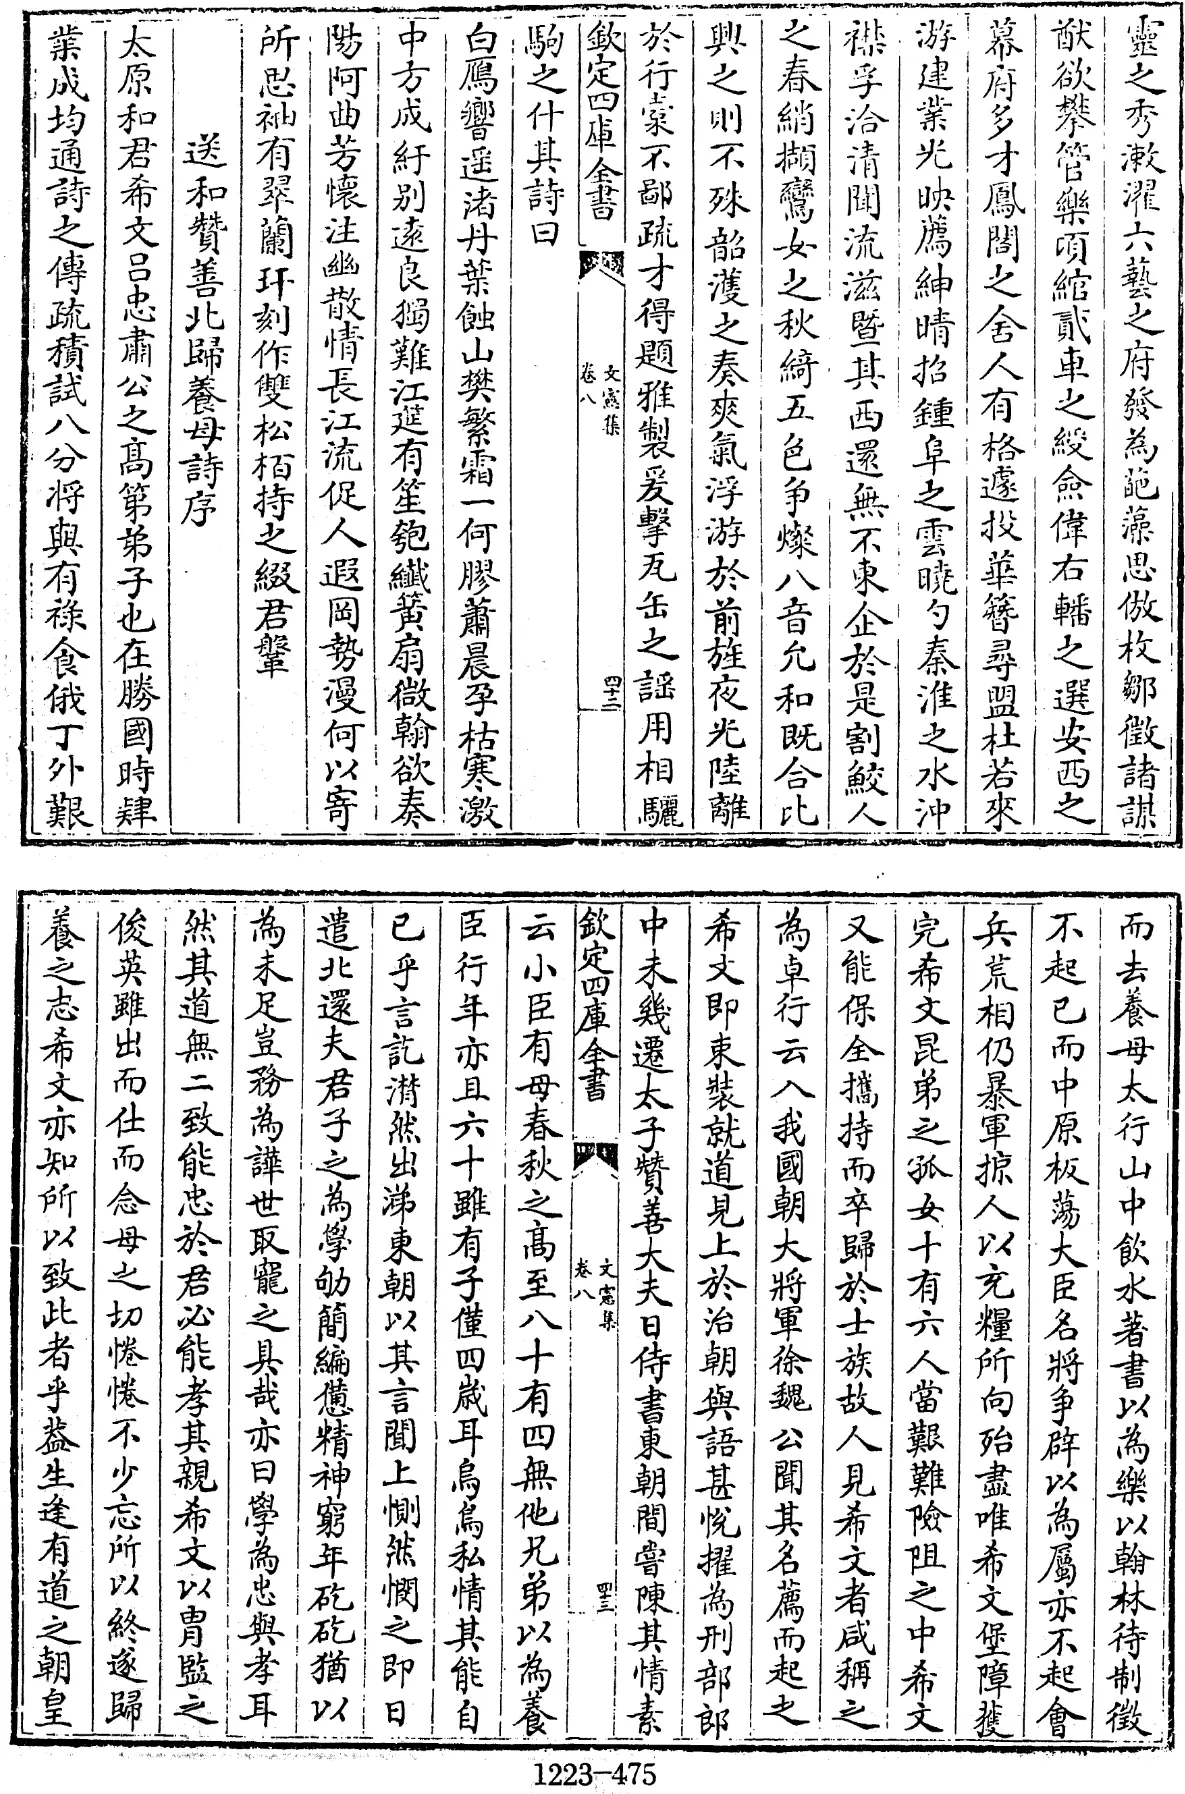 靈之秀漱濯六藝之府發為葩藻思倣枚鄒徵諸謀
猷欲攀管樂頃綰貳車之綬僉偉右轓之選安西之
幕府多才鳳閣之舍人有格遽投華簪尋盟杜若來
游建業光映薦紳晴招鍾阜之雲曉勺秦淮之水沖
襟孚洽清聞流滋暨其西還無不東企於是割鮫人
之春綃擷鸞女之秋綺五色争燦八音允和既合比
興之則不殊韶濩之奏爽氣浮游於前旌夜光陸離
於行橐不鄙疏才得題雅製爰擊瓦缶之謡用相驪
欽定四庫全書
文憲集
卷八
四十二
駒之什其詩曰
白鴈響遥渚丹葉蝕山樊繁霜一何膠蕭晨孕枯寒激
中方成紆别遠良獨難江筵有笙匏纖簧扇微翰欲奏
陽阿曲芳懷注幽散情長江流促人遐岡勢漫何以寄
所思袖有翠蘭玕刻作雙松栢持之綴君鞶
送和贊善北歸養母詩序
太原和君希文吕忠肅公之髙第弟子也在勝國時肄
業成均通詩之傳疏積試八分将與有禄食俄丁外艱
而去養母太行山中飲水著書以為樂以翰林待制徵
不起已而中原板蕩大臣名將争辟以為屬亦不起會
兵荒相仍暴軍掠人以充糧所向殆盡唯希文堡障獲
完希文昆弟之孤女十有六人當艱難險阻之中希文
又能保全攜持而卒歸於士族故人見希文者咸稱之
為卓行云入我國朝大將軍徐魏公聞其名薦而起之
希文即束裝就道見上於治朝與語甚悅擢為刑部郎
中未幾遷太子贊善大夫日侍書東朝間嘗陳其情素
欽定四庫全書
文憲集
卷八
四十三
云小臣有母春秋之髙至八十有四無他兄弟以為養
臣行年亦且六十雖有子僅四歲耳烏烏私情其能自
已乎言訖潸然出涕東朝以其言聞上惻然憫之即日
遣北還夫君子之為學劬簡編憊精神窮年矻矻猶以
為未足豈務為譁世取寵之具哉亦曰學為忠與孝耳
然其道無二致能忠於君必能孝其親希文以胄監之
俊英雖出而仕而念母之切惓惓不少忘所以終遂歸
養之志希文亦知所以致此者乎葢生逢有道之朝皇
1223-475